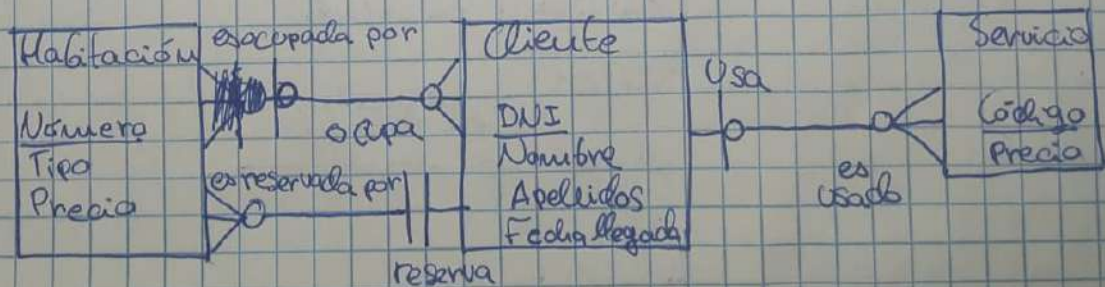 Habitación
Número
Tipo
Precio
es ocupada por
ocupa
es reservada por
reserva
Cliente
DNI
Nombre
Apellidos
Fecha llegada
Usa
es
usado
Servicio
Código
Precio